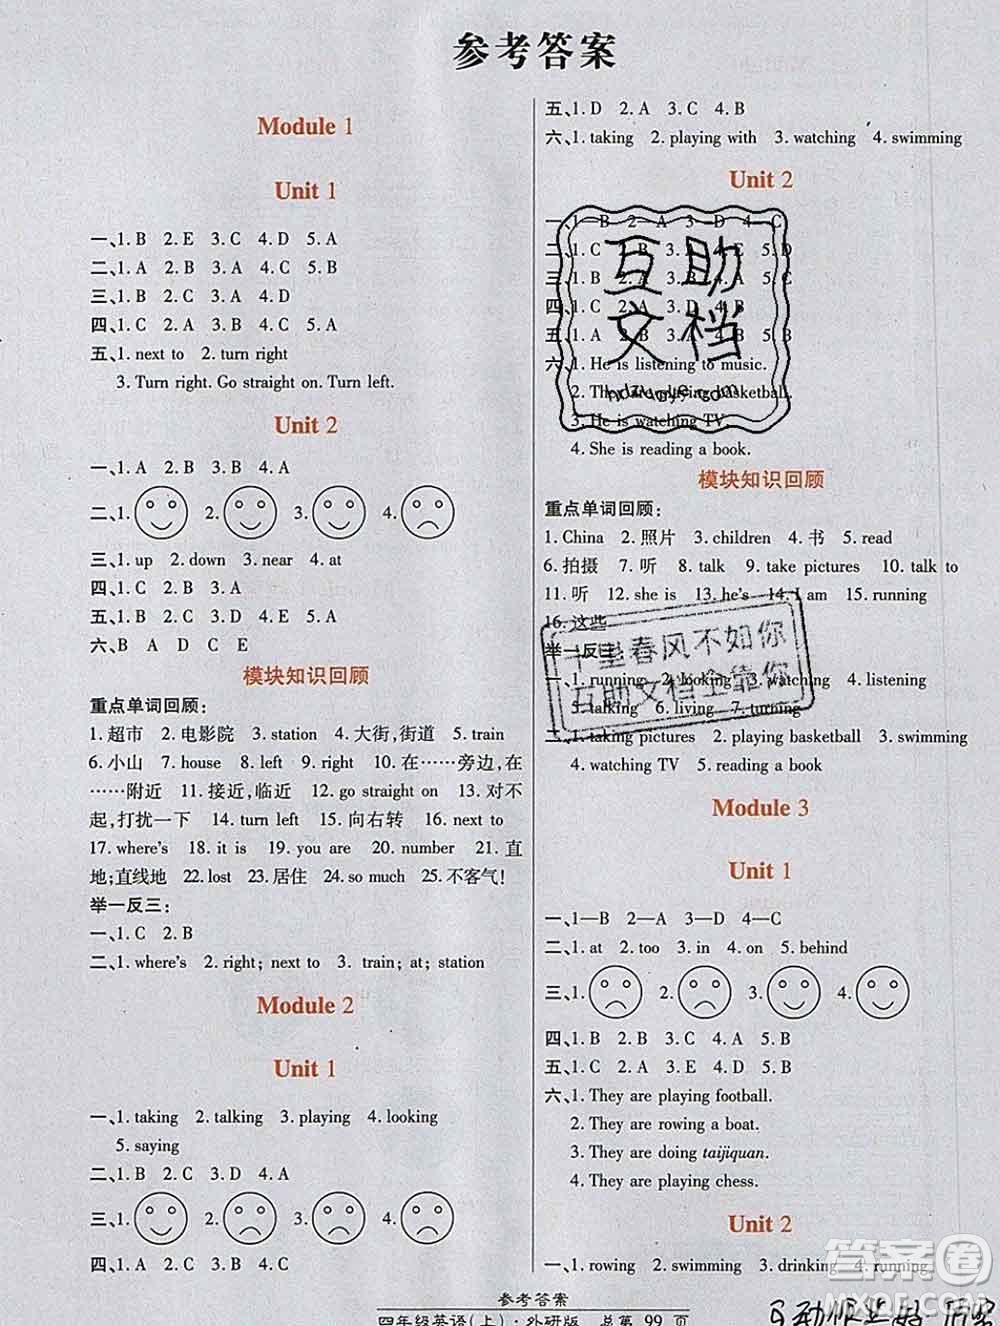 参考答案
Module 1
Unit 1
一、1. B 2. E 3. C 4. D 5. A
二、1. B 2. B 3. A 4. C 5. B
三、1. B 2. C 3. A 4. D
四、1. C 2. A 3. B 4. C 5. C
五、1. next to 2. turn right
3. Turn right. Go straight on. Turn left.
Unit 2
一、1. A 2. B 3. B 4. A
二、1. 2. 3. 4.
三、1. up 2. down 3. near 4. at
四、1. C 2. B 3. A
五、1. C 2. B 3. A 4. B 5. A
六、B A D C E
模块知识回顾
重点单词回顾：
1. 超市 2. 电影院 3. station 4. 大街,街道 5. train
6. 小山 7. house 8. left 9. right 10. 在……旁边,在
……附近 11. 接近,临近 12. go straight on 13. 对不
起,打扰一下 14. turn left 15. 向右转 16. next to
17. where's 18. it is 19. you are 20. number 21. 直
地;直线地 22. lost 23. 居住 24. so much 25. 不客气!
举一反三：
一、1. C 2. B
二、1. where's 2. right; next to 3. train; at; station
Module 2
Unit 1
一、1. taking 2. talking 3. playing 4. looking
5. saying
二、1. B 2. C 3. D 4. A
三、1. 2. 3. 4.
四、1. A 2. C 3. B 4. B 5. C
五、1. D 2. A 3. C 4. B
六、1. taking 2. playing with 3. watching 4. swimming
Unit 2
一、1—B 2—A 3—D 4—C
二、1. C 2. B 4. E 5. D
三、1. B 2. A 5. B
四、1. C 2. A 3. D 4. B
五、1. A 2. B 3. B 4. A 5. C
六、1. He is listening to music.
2. They are playing basketball.
3. He is watching TV.
4. She is reading a book.
互助
文档
模块知识回顾
重点单词回顾：
1. China 2. 照片 3. children 4. 书 5. read
6. 拍摄 7. 听 8. talk 9. take pictures 10. talk to
11. 听 12. she is 13. he's 14. I am 15. running
16. 这些
举一反三：
一、1. running 2. looking 3. watching 4. listening
5. talking 6. living 7. turning
二、1. taking pictures 2. playing basketball 3. swimming
4. watching TV 5. reading a book
千里春风不如你
互助文档全靠你
Module 3
Unit 1
一、1—B 2—A 3—D 4—C
二、1. at 2. too 3. in 4. on 5. behind
三、1. 2. 3. 4.
四、1. B 2. B 3. C 4. A 5. B
五、1. C 2. A 3. A 4. B 5. B
六、1. They are playing football.
2. They are rowing a boat.
3. They are doing taijiquan.
4. They are playing chess.
Unit 2
一、1. rowing 2. swimming 3. drinking 4. running
参考答案
四年级英语(上)·外研版 总第 99 页
答案圈